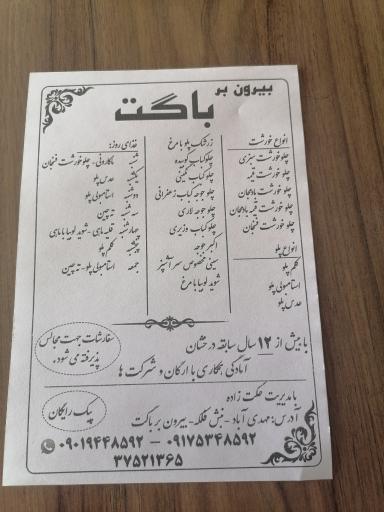 بیرون بر
باگت
انواع خورشت
چلو خورشت سبزی
چلو خورشت قیمه
چلو خورشت بادمجان
چلو خورشت قیمه بادمجان
چلو خورشت فنجان
انواع پلو
کلم پلو
استامبولی پلو
عدس پلو
زرشک پلو با مرغ
چلو کباب کوبیده
چلو کباب نگینی
چلو جوجه کباب زعفرانی
چلو جوجه لاری
چلو کباب وزیری
اکبر جوجه
سینی مخصوص سر آشپز
شوید لوبیا با مرغ
غذای روز:
شنبه ماکارونی - چلو خورشت فنجان
یکشنبه عدس پلو
دوشنبه استامبولی پلو
سه شنبه ته چین
چهارشنبه قلیه ماهی - شوید لوبیا با ماهی
پنجشنبه کلم پلو
جمعه استامبولی پلو - ته چین
با بیش از ۱۲ سال سابقه درخشان
آمادگی همکاری با ارگان و شرکت ها
سفارشات جهت مجالس
پذیرفته می شود.
با مدیریت حکمت زاده
آدرس: مهدی آباد - نبش فلکه - بیرون بر باگت
پیک رایگان
۰۹۰۱۹۴۴۸۵۹۲ – ۰۹۱۷۵۳۴۸۵۹۲
۳۷۵۲۱۳۶۵